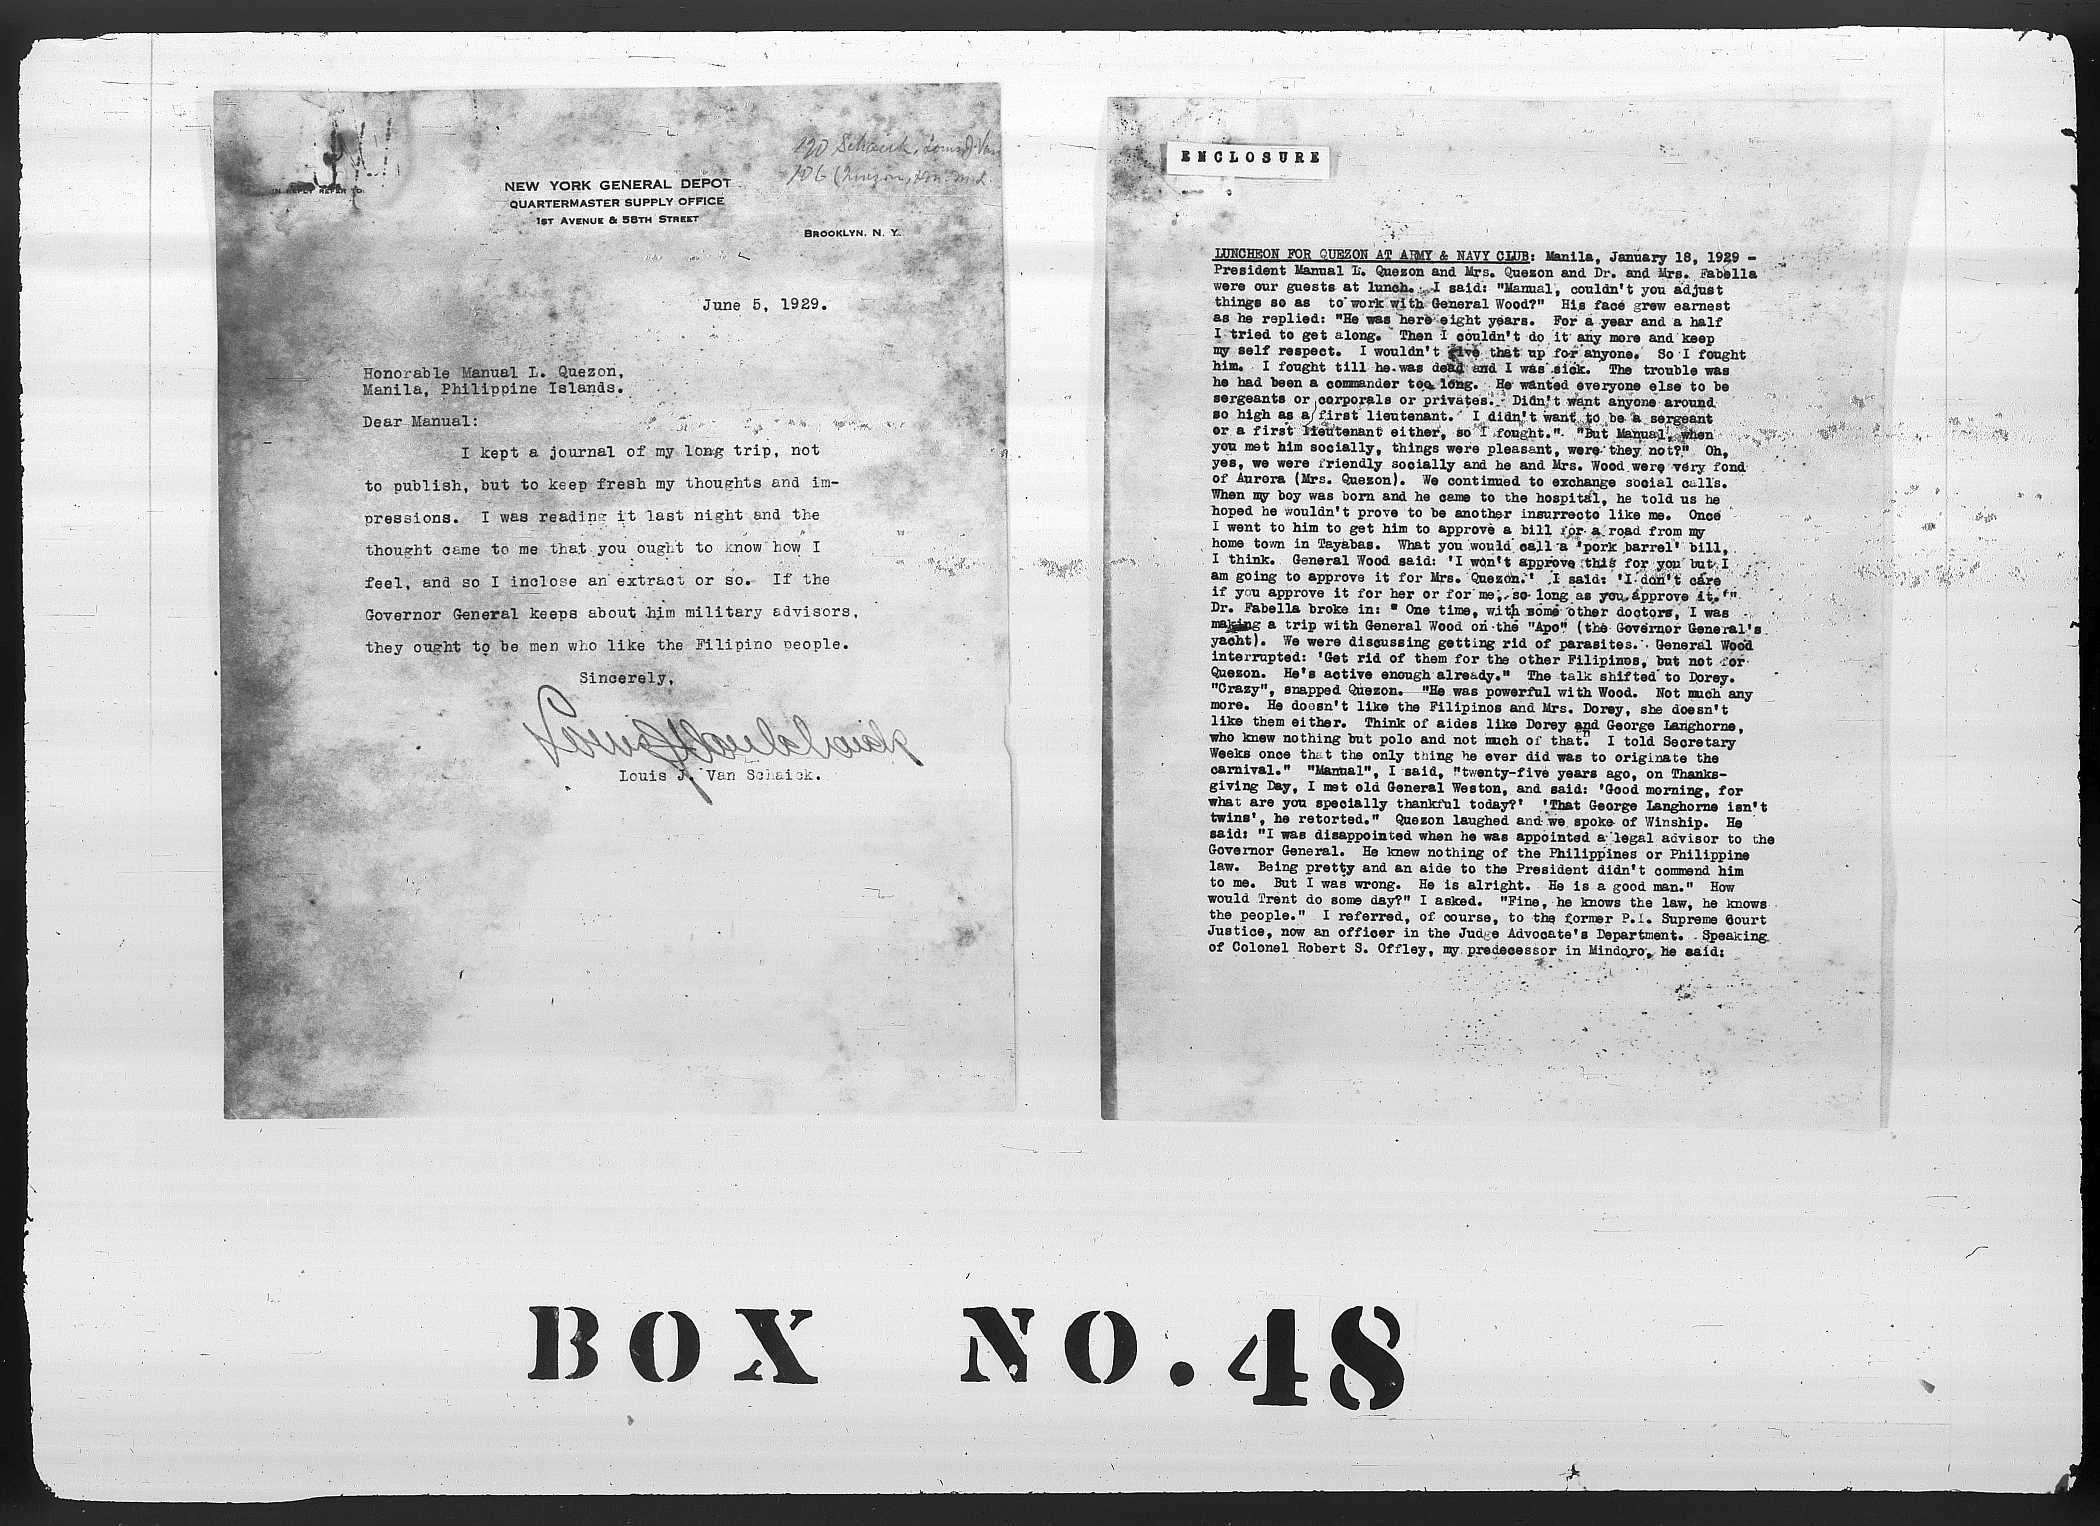 IN REPLY REFER TO
NEW YORK GENERAL DEPOT
QUARTERMASTER SUPPLY OFFICE
1ST AVENUE & 58TH STREET
BROOKLYN, N. Y.
June 5, 1929.
Honorable Manual L. Quezon,
Manila, Philippine Islands.
Dear Manual:
I kept a journal of my long trip, not
to publish, but to keep fresh my thoughts and im-
pressions. I was reading it last night and the
thought came to me that you ought to know how I
feel, and so I inclose an extract or so. If the
Governor General keeps about him military advisors,
they ought to be men who like the Filipino people.
Sincerely,
Louis J. Van Schaick
Louis J. Van Schaick.
ENCLOSURE
LUNCHEON FOR QUEZON AT ARMY & NAVY CLUB: Manila, January 18, 1929 -
President Manual L. Quezon and Mrs. Quezon and Dr. and Mrs. Fabella
were our guests at lunch. I said: "Manual, couldn't you adjust
things so as to work with General Wood?" His face grew earnest
as he replied: "He was here eight years. For a year and a half
I tried to get along. Then I couldn't do it any more and keep
my self respect. I wouldn't give that up for anyone. So I fought
him. I fought till he was dead and I was sick. The trouble was
he had been a commander too long. He wanted everyone else to be
sergeants or corporals or privates. Didn't want anyone around
so high as a first lieutenant. I didn't want to be a sergeant
or a first lieutenant either, so I fought." "But Manual, when
you met him socially, things were pleasant, were they not?" Oh,
yes, we were friendly socially and he and Mrs. Wood were very fond
of Aurora (Mrs. Quezon). We continued to exchange social calls.
When my boy was born and he came to the hospital, he told us he
hoped he wouldn't prove to be another insurrecto like me. Once
I went to him to get him to approve a bill for a road from my
home town in Tayabas. What you would call a 'pork barrel' bill,
I think. General Wood said: 'I won't approve this for you but I
am going to approve it for Mrs. Quezon.' I said: 'I don't care
if you approve it for her or for me, so long as you approve it.'"
Dr. Fabella broke in: " One time, with some other doctors, I was
making a trip with General Wood on the "Apo" (the Governor General's
yacht). We were discussing getting rid of parasites. General Wood
interrupted: 'Get rid of them for the other Filipinos, but not for
Quezon. He's active enough already." The talk shifted to Dorey.
"Crazy", snapped Quezon. "He was powerful with Wood. Not much any
more. He doesn't like the Filipinos and Mrs. Dorey, she doesn't
like them either. Think of aides like Dorey and George Langhorne,
who knew nothing but polo and not much of that." I told Secretary
Weeks once that the only thing he ever did was to originate the
carnival." "Manual", I said, "twenty-five years ago, on Thanks-
giving Day, I met old General Weston, and said: 'Good morning, for
what are you specially thankful today?' 'That George Langhorne isn't
twins', he retorted." Quezon laughed and we spoke of Winship. He
said: "I was disappointed when he was appointed a legal advisor to the
Governor General. He knew nothing of the Philippines or Philippine
law. Being pretty and an aide to the President didn't commend him
to me. But I was wrong. He is alright. He is a good man." How
would Trent do some day?" I asked. "Fine, he knows the law, he knows
the people." I referred, of course, to the former P.I. Supreme Court
Justice, now an officer in the Judge Advocate's Department. Speaking
of Colonel Robert S. Offley, my predecessor in Mindoro, he said:
BOX NO. 48